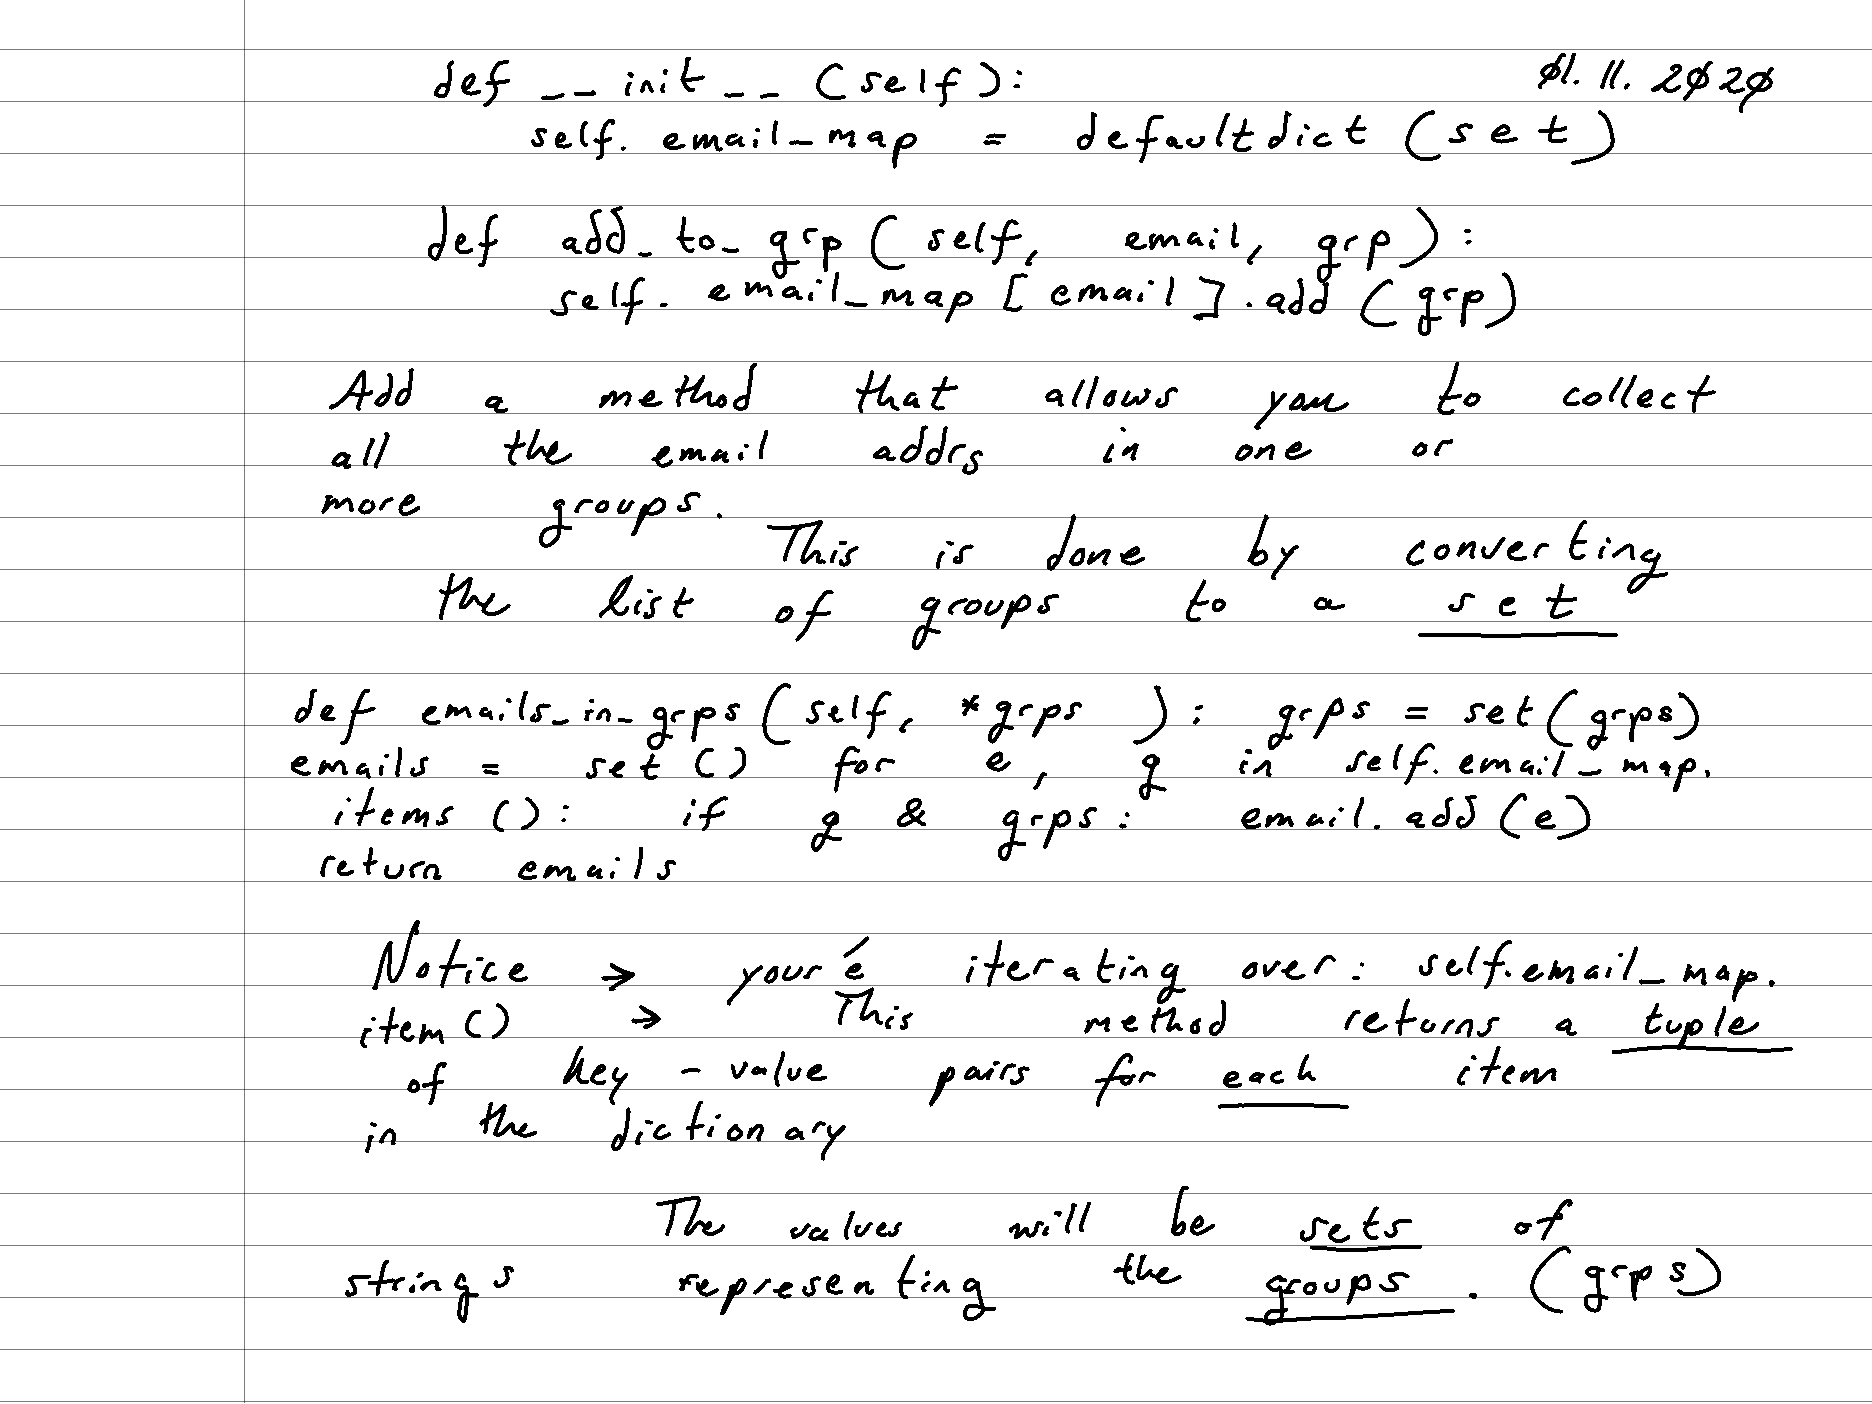 def __init__(self): 01.11.2020
self.email_map = defaultdict(set)
def add_to_grp(self, email, grp):
self.email_map[email].add(grp)
Add a method that allows you to collect
all the email addrs in one or
more groups.
This is done by converting
the list of groups to a set
def emails_in_grps(self, *grps): grps = set(grps)
emails = set() for e, g in self.email_map.
items(): if g & grps: email.add(e)
return emails
Notice → your é iterating over: self.email_map.
item() → This method returns a tuple
of key-value pairs for each item
in the dictionary
The values will be sets of
strings representing the groups. (grps)